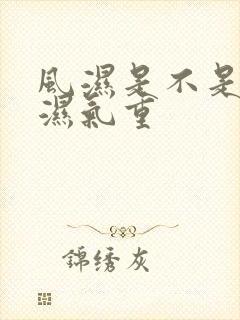 風濕是不是
濕氣重
錦绣灰